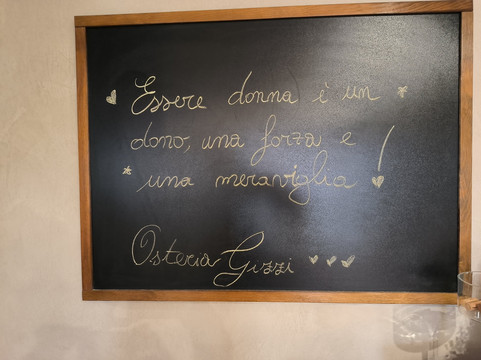 Essere donna è un
dono, una forza e
una meraviglia!
Osteria Gizzi